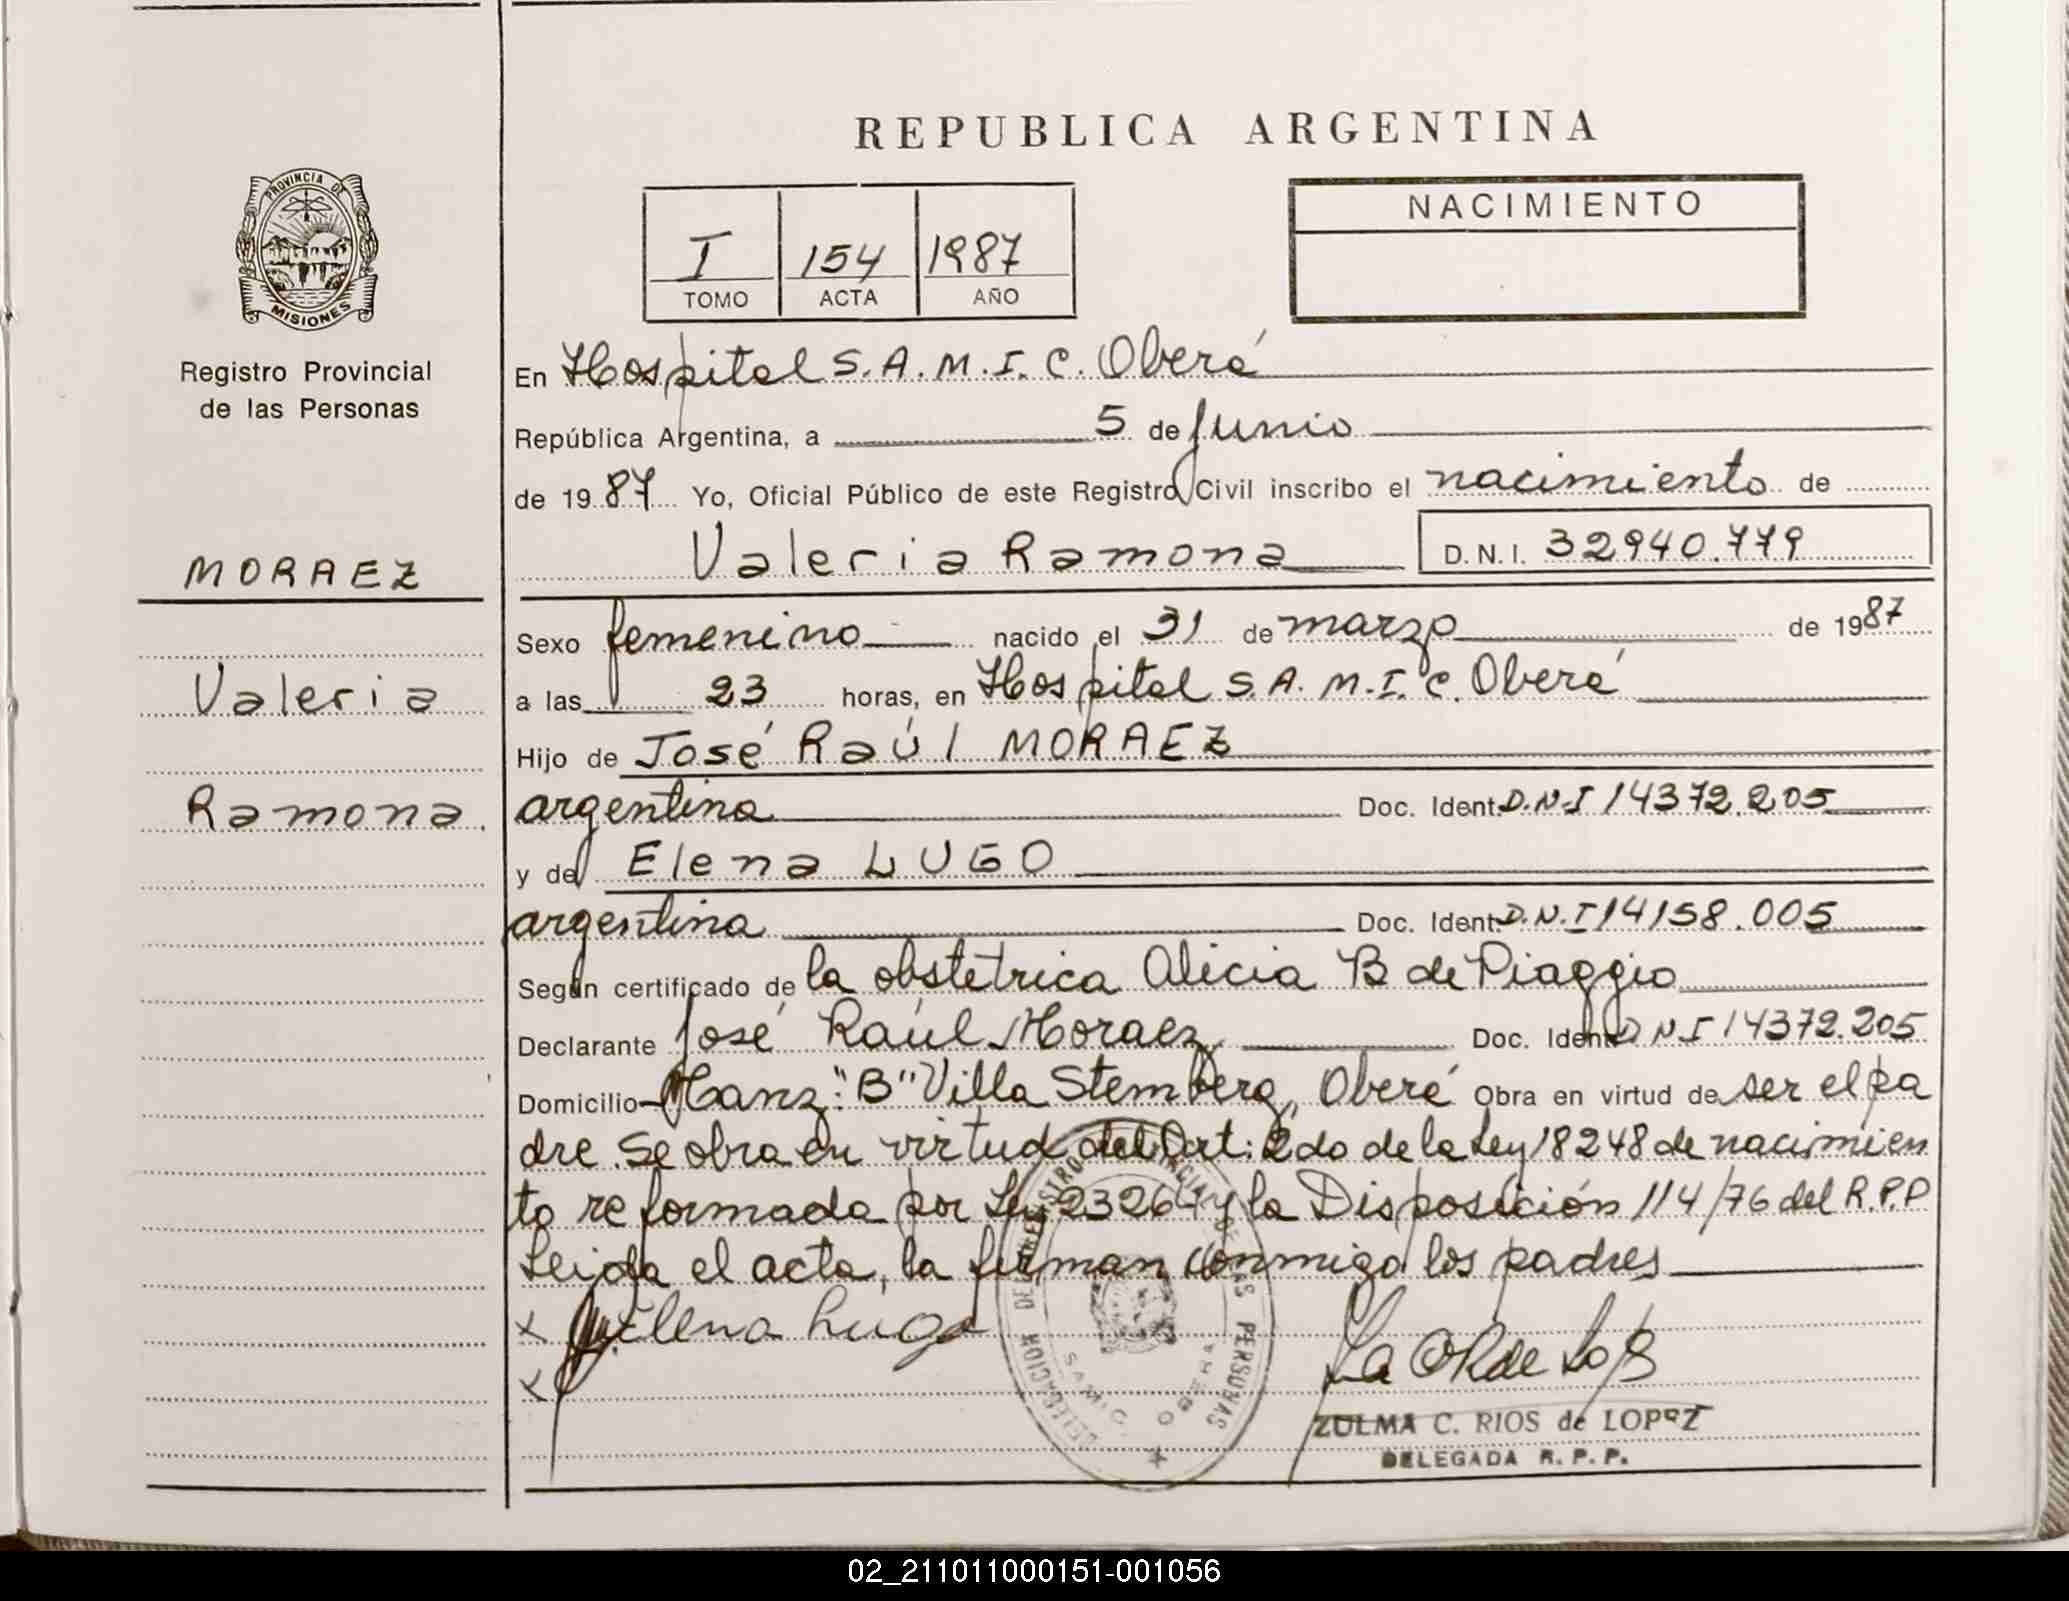 REPUBLICA ARGENTINA
PROVINCIA DE
MISIONES
Registro Provincial
de las Personas
I 154 1987
TOMO ACTA AÑO
NACIMIENTO
En Hospital S.A.M.I.C. Oberá
República Argentina, a 5 de Junio
de 1987 Yo, Oficial Público de este Registro Civil inscribo el nacimiento de
Valeria Ramona D.N.I. 32940.779
MORAEZ
Valeria
Ramona
Sexo femenino nacido el 31 de marzo de 1987
a las 23 horas, en Hospital S.A.M.I.C. Oberá
Hijo de José Raúl MORAEZ
argentina Doc. Ident. D.N.I 14372.205
y de Elena LUGO
argentina Doc. Ident. D.N.I 14158.005
Según certificado de la obstetrica Alicia B de Piaggio
Declarante José Raúl Moraez Doc. Ident. D N I 14372.205
Domicilio Manz: "B" Villa Stemberg, Oberá Obra en virtud de ser el pa
dre. Se obra en virtud del Art: 2do de la Ley 18248 de nacimien
to reformada por Ley 23264 y la Disposición 114/76 del R.P.P
Leida el acta, la firman conmigo los padres
x Elena Lugo
x
DELEGACION DEL REGISTRO PROVINCIAL DE LAS PERSONAS
SAMIC OBERA
ZULMA C. RIOS de LOPEZ
DELEGADA R.P.P.
02_211011000151-001056